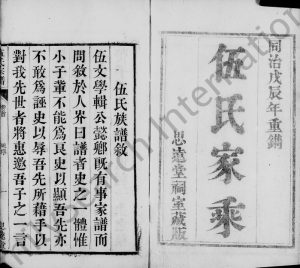 同治戊辰年重鐫
伍氏家乘
思遠堂祠室藏版
伍氏族譜敘
伍文學輯公懿鄉既有事家譜而
問敘於人界曰譜者史之一體惟
小子輩不能為良史以顯吾先亦
不敢為誣史以辱吾先所藉手以
對我先世者將惠邀吾子之一言